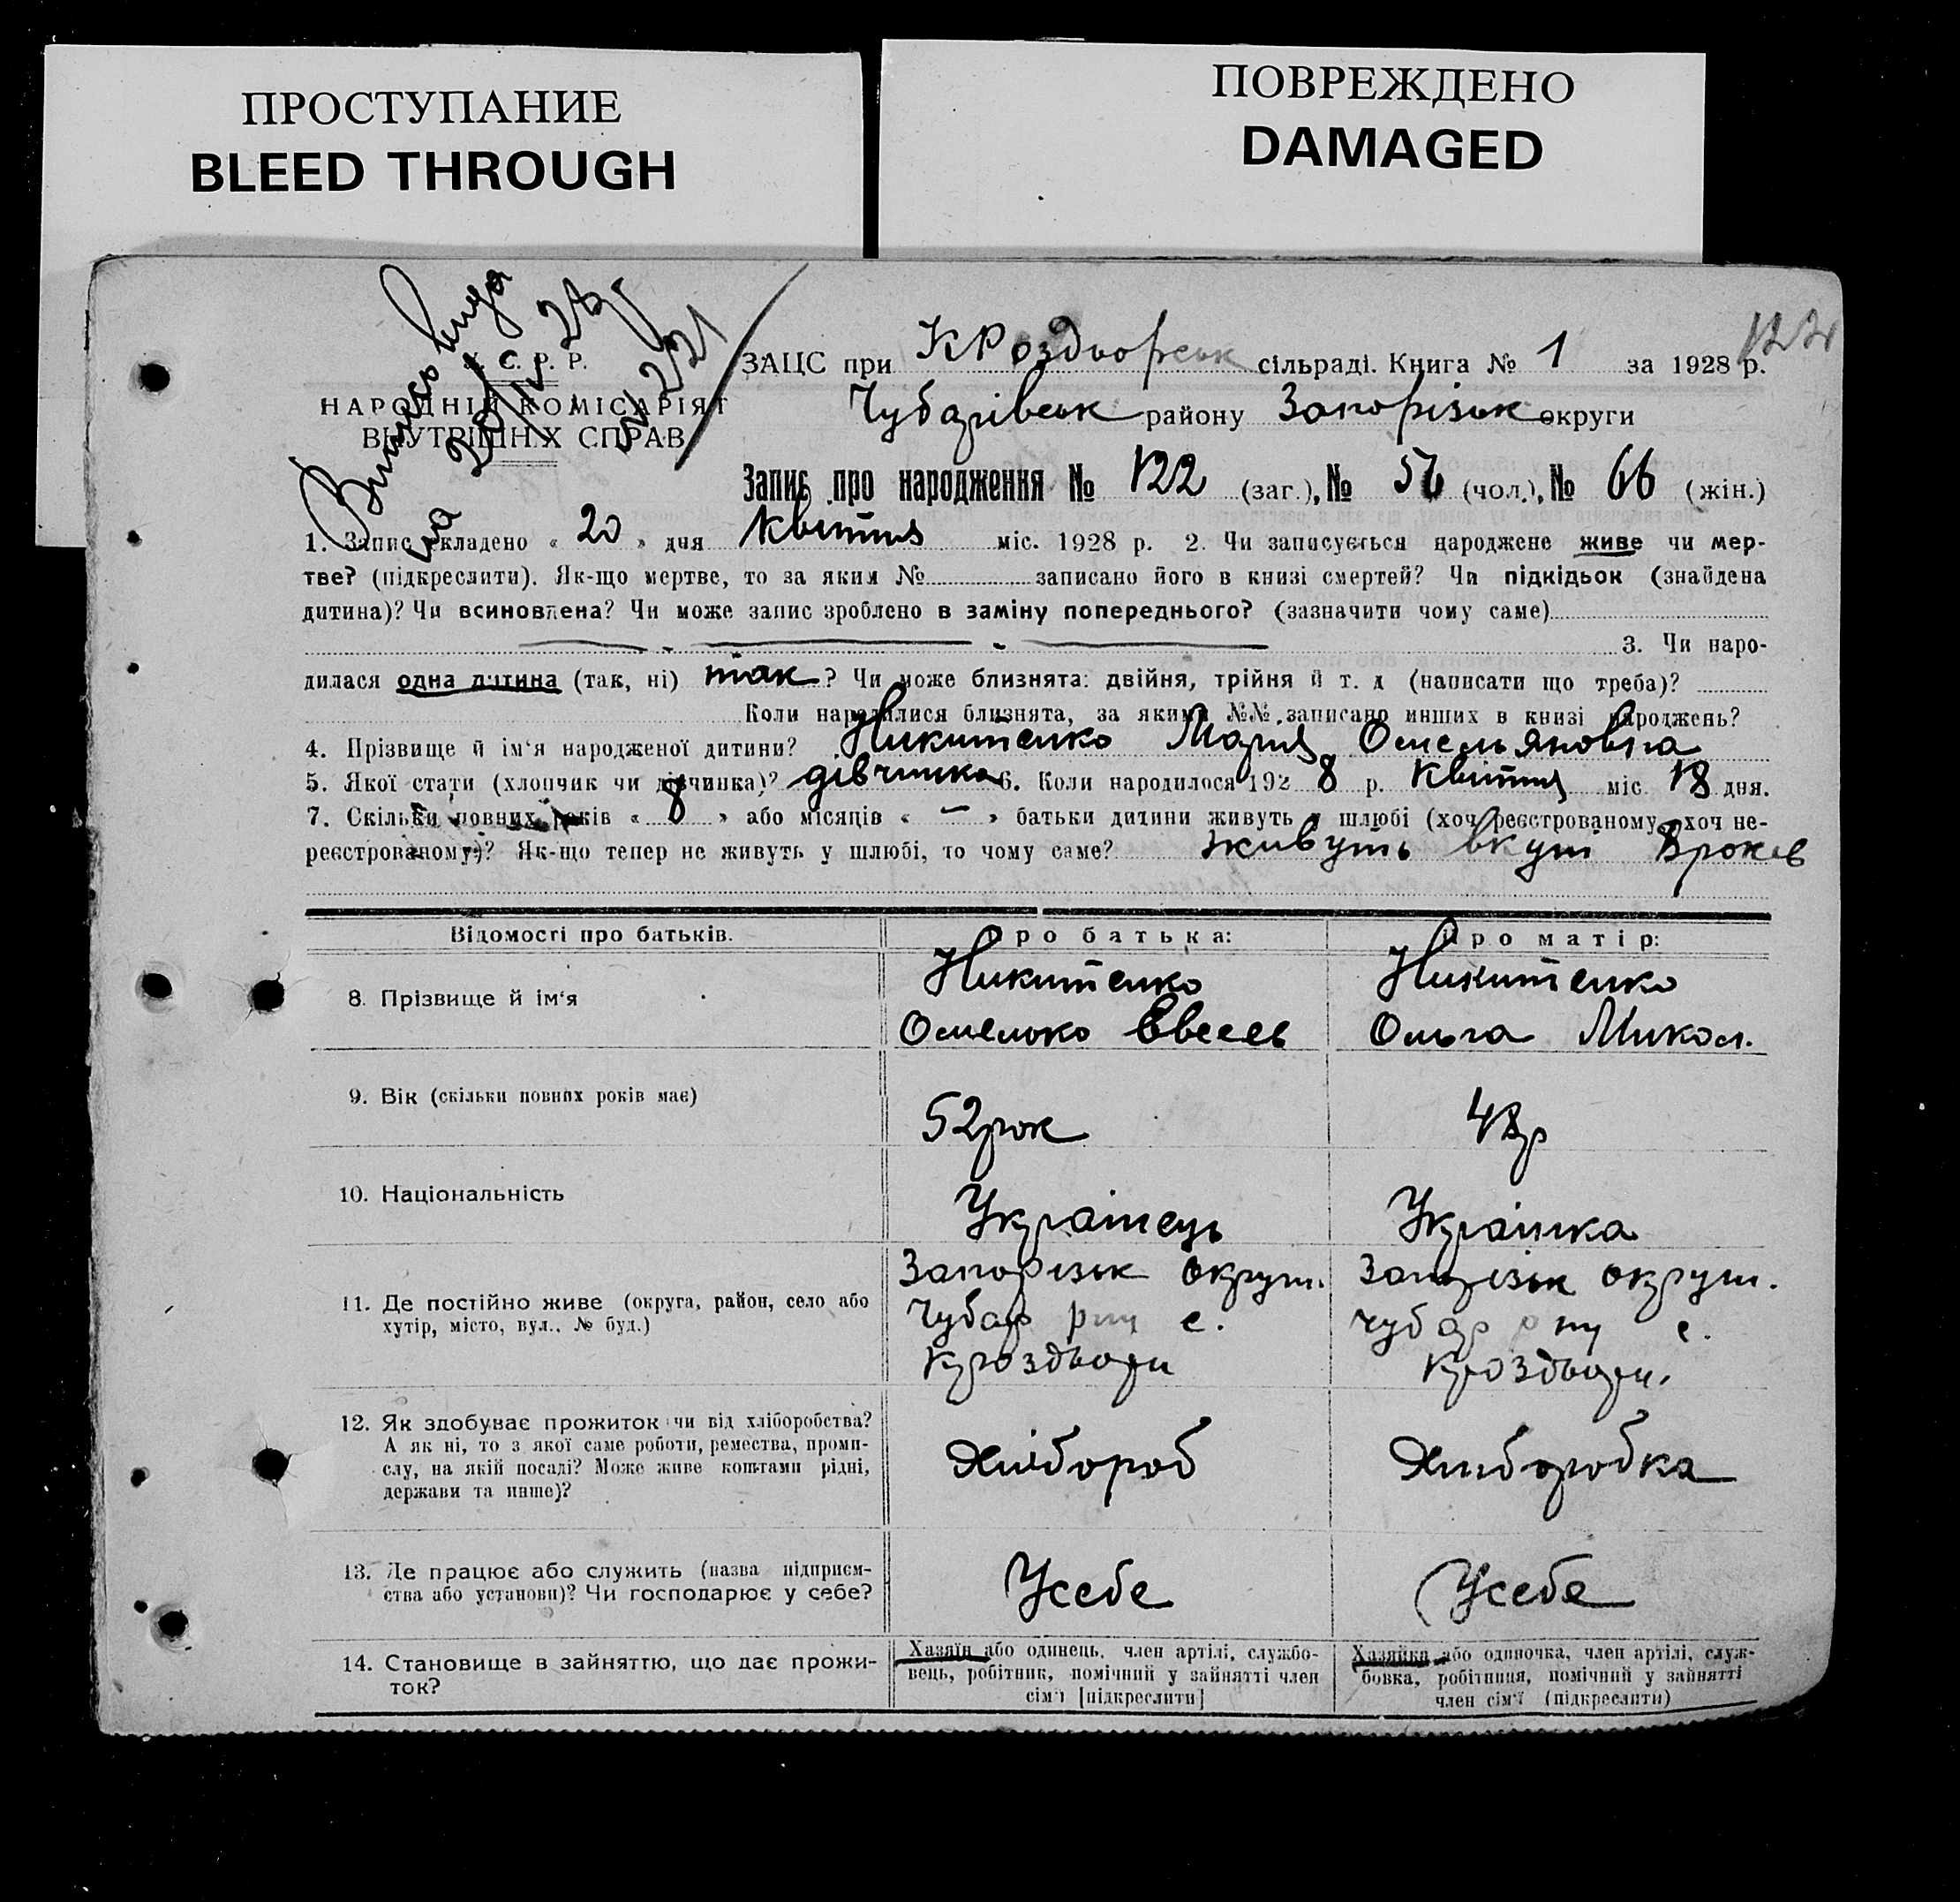 ПРОСТУПАНИЕ
BLEED THROUGH
ПОВРЕЖДЕНО
DAMAGED
Випись
на 20/IV 28
С. Р. Р.
НАРОДНІЙ КОМІСАРІЯТ
ВНУТРІШНІХ СПРАВ
122
ЗАЦС при КРоздворськ сільраді. Книга № 1 за 1928 р.
Чубарівськ району Запорізьк округи
Запис про народження № 122 (заг.), № 56 (чол.), № 66 (жін.)
1. Запис складено « 20 » дня Квітня міс. 1928 р. 2. Чи записується народжене живе чи мер-
тве? (підкреслити). Як-що мертве, то за яким № записано його в книзі смертей? Чи підкідьок (знайдена
дитина)? Чи всиновлена? Чи може запис зроблено в заміну попереднього? (зазначити чому саме)
3. Чи наро-
дилася одна дитина (так, ні) так ? Чи може близнята: двійня, трійня й т. д (написати що треба)?
Коли народилися близнята, за якими №№ записано инших в книзі народжень?
4. Прізвище й ім'я народженої дитини? Никитенко Мария Омельяновна
5. Якої стати (хлопчик чи дівчинка)? дівчинка 6. Коли народилося 192 8 р. Квітня міс. 18 дня.
7. Скільки повних років « 8 » або місяців « — » батьки дитини живуть у шлюбі (хоч реєстрованому, хоч не-
реєстрованому)? Як-що тепер не живуть у шлюбі, то чому саме? живуть вкупі 8 роков
Відомості про батьків.
Про батька:
Про матір:
8. Прізвище й ім'я
Никитенко
Омелько Евсеев
Никитенко
Ольга Микол.
9. Вік (скільки повних років має)
52 рок
48 р
10. Національність
Українець
Українка
11. Де постійно живе (округа, район, село або
хутір, місто, вул., № буд.)
Запорізьк округи.
Чубар рну с.
Кроздвори
Запорізьк округи.
Чубар рну с.
Кроздвори.
12. Як здобуває прожиток чи від хліборобства?
А як ні, то з якої саме роботи, ремества, проми-
слу, на якій посаді? Може живе коштами рідні,
держави та инше)?
Хлібороб
Хлиборобка
13. Де працює або служить (назва підприєм-
ства або установи)? Чи господарює у себе?
Усебе
Усебе
14. Становище в зайняттю, що дає прожи-
ток?
Хазяїн або одинець, член артілі, службо-
вець, робітник, помічний у зайнятті член
сім'ї [підкреслити]
Хазяйка або одиночка, член артілі, служ-
бовка, робітниця, помічний у зайнятті
член сім'ї (підкреслити)